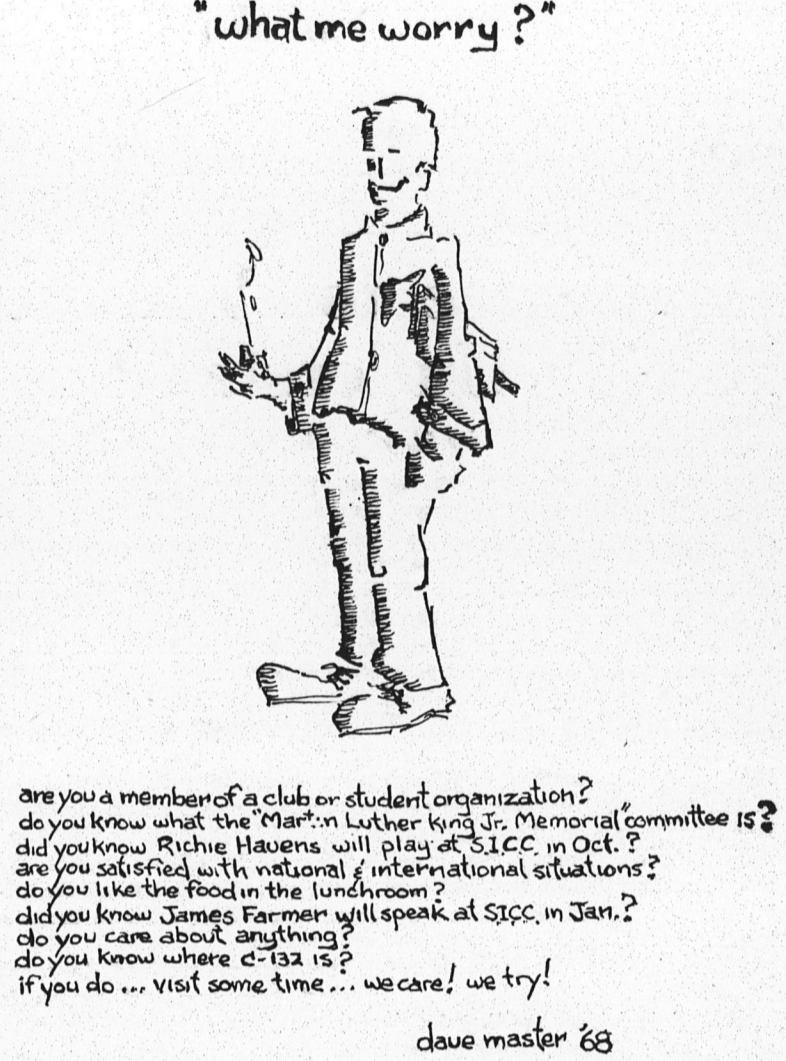 "what me worry?"
are you a member of a club or student organization?
do you know what the "Martin Luther King Jr. Memorial" committee is?
did you know Richie Havens will play at S.I.C.C. in Oct.?
are you satisfied with national & international situations?
do you like the food in the lunchroom?
did you know James Farmer will speak at S.I.C.C. in Jan.?
do you care about anything?
do you know where C-132 is?
if you do... visit some time... we care! we try!
dave master '68